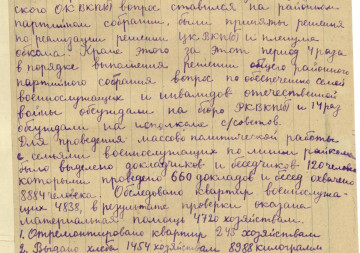 ского ОК ВКП(б) вопрос ставился на районном
партийном собрании, были приняты решения
по реализации решении ЦК ВКП(б) и пленума
обкома. Кроме этого за этот период 4 раза
в порядке выполнения решении общего районного
партийного собрания вопрос по обеспечению семей
военнослужащих и инвалидов отечественной
войны обсуждали на бюро РК ВКП(б) и 14 раз
обсуждали на исполкоме с/советов.
Для проведения массово политической работы
с семьями военнослужащих по линии райкома
было выделено докладчиков и беседчиков - 120 человек
которыми проведено 660 докладов и бесед охвачено
8884 человека. Обследовано квартир военнослужа-
щих 4838, в результате проверки оказана
материальная помощь 4720 хозяйствам.
1. Отремонтировано квартир 248 хозяйствам
2. Выдано хлеба 1454 хозяйствам 8988 килограмм